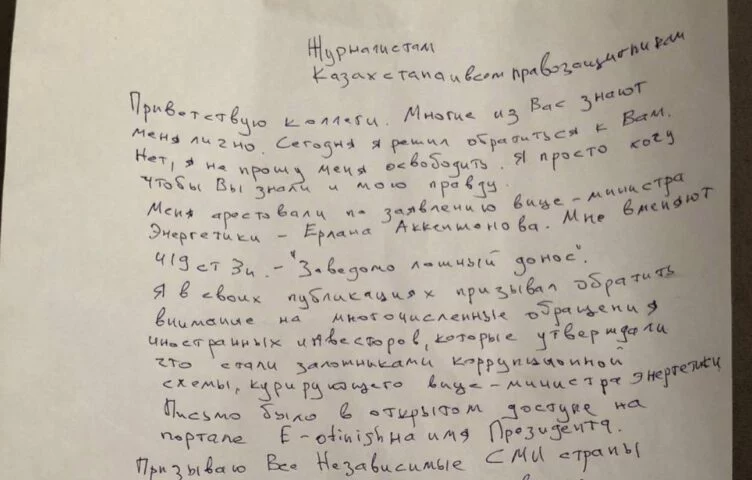 Журналистам
Казахстана и всем правозащитникам
Приветствую коллеги. Многие из Вас знают
меня лично. Сегодня я решил обратиться к Вам.
Нет, я не прошу меня освободить. Я просто хочу
чтобы Вы знали и мою правду.
Меня арестовали по заявлению вице-министра
Энергетики - Ерлана Аккенженова. Мне вменяют
419 ст 3ч. - "Заведомо ложный донос".
Я в своих публикациях призывал обратить
внимание на многочисленные обращения
иностранных инвесторов, которые утверждали
что стали заложниками коррупционной
схемы, курирующего вице-министра энергетики
Письмо было в открытом доступе на
портале E-otinish на имя Президента.
Призываю Все Независимые СМИ страны